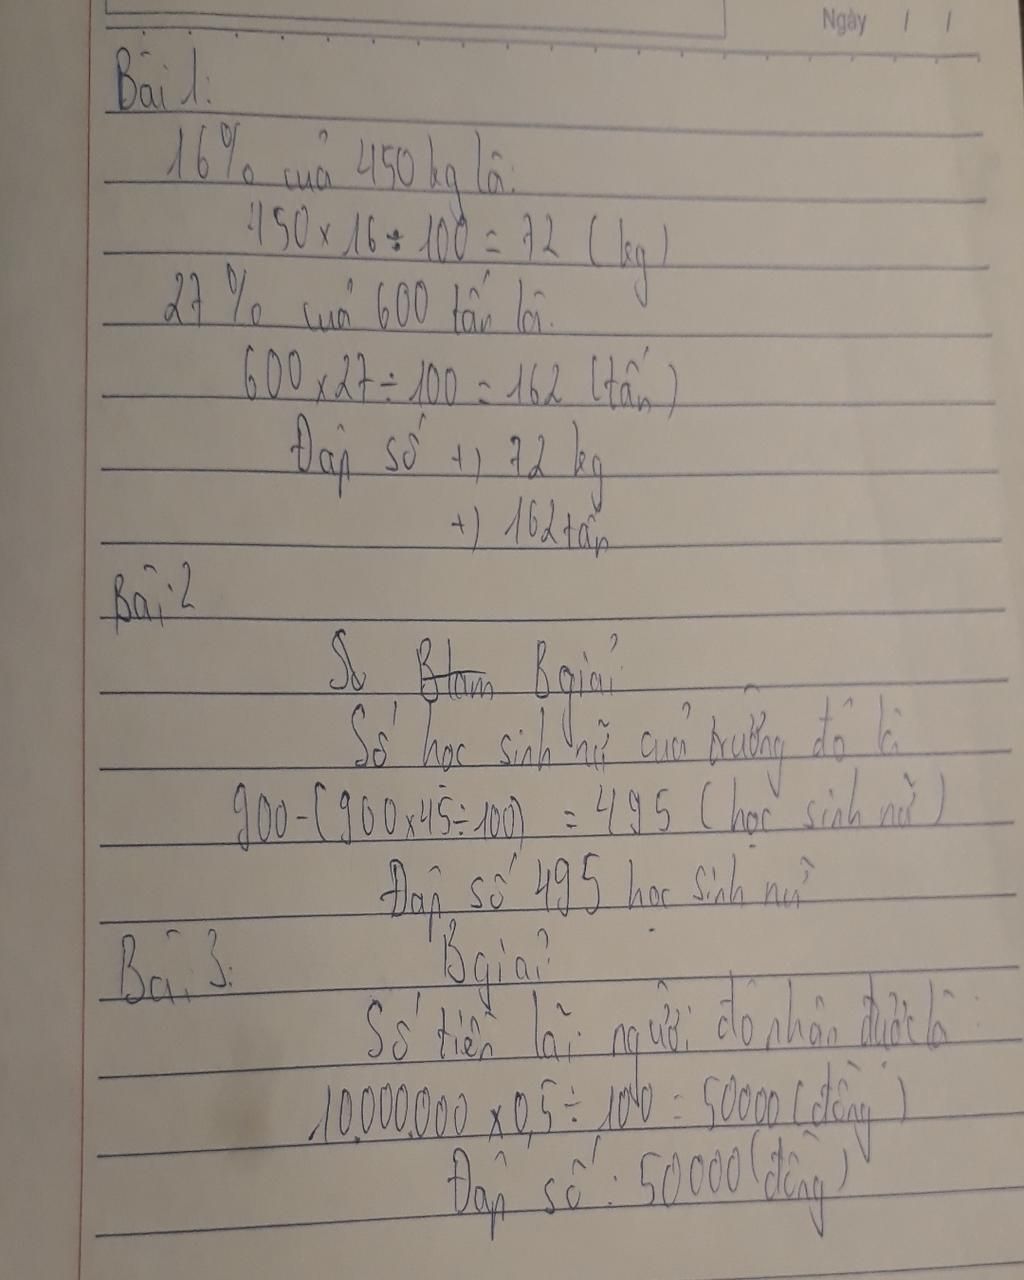 Ngày / /
Bài 1:
16% cuả 450 kg là:
450 × 16 ÷ 100 = 72 (kg)
27 % cuả 600 tấn là:
600 × 27 ÷ 100 = 162 (tấn)
Đáp số +) 72 kg
+) 162 tấn
Bài: 2
B giải
Số học sinh nữ cuả trường đó là
900 - (900 × 45 ÷ 100) = 495 (học sinh nữ)
Đáp số 495 học sinh nữ
Bài 3: B giải
Số tiền lãi người đó nhận được là:
10,000,000 × 0,5 ÷ 100 = 50000 (đồng)
Đáp số: 50000 (đồng)